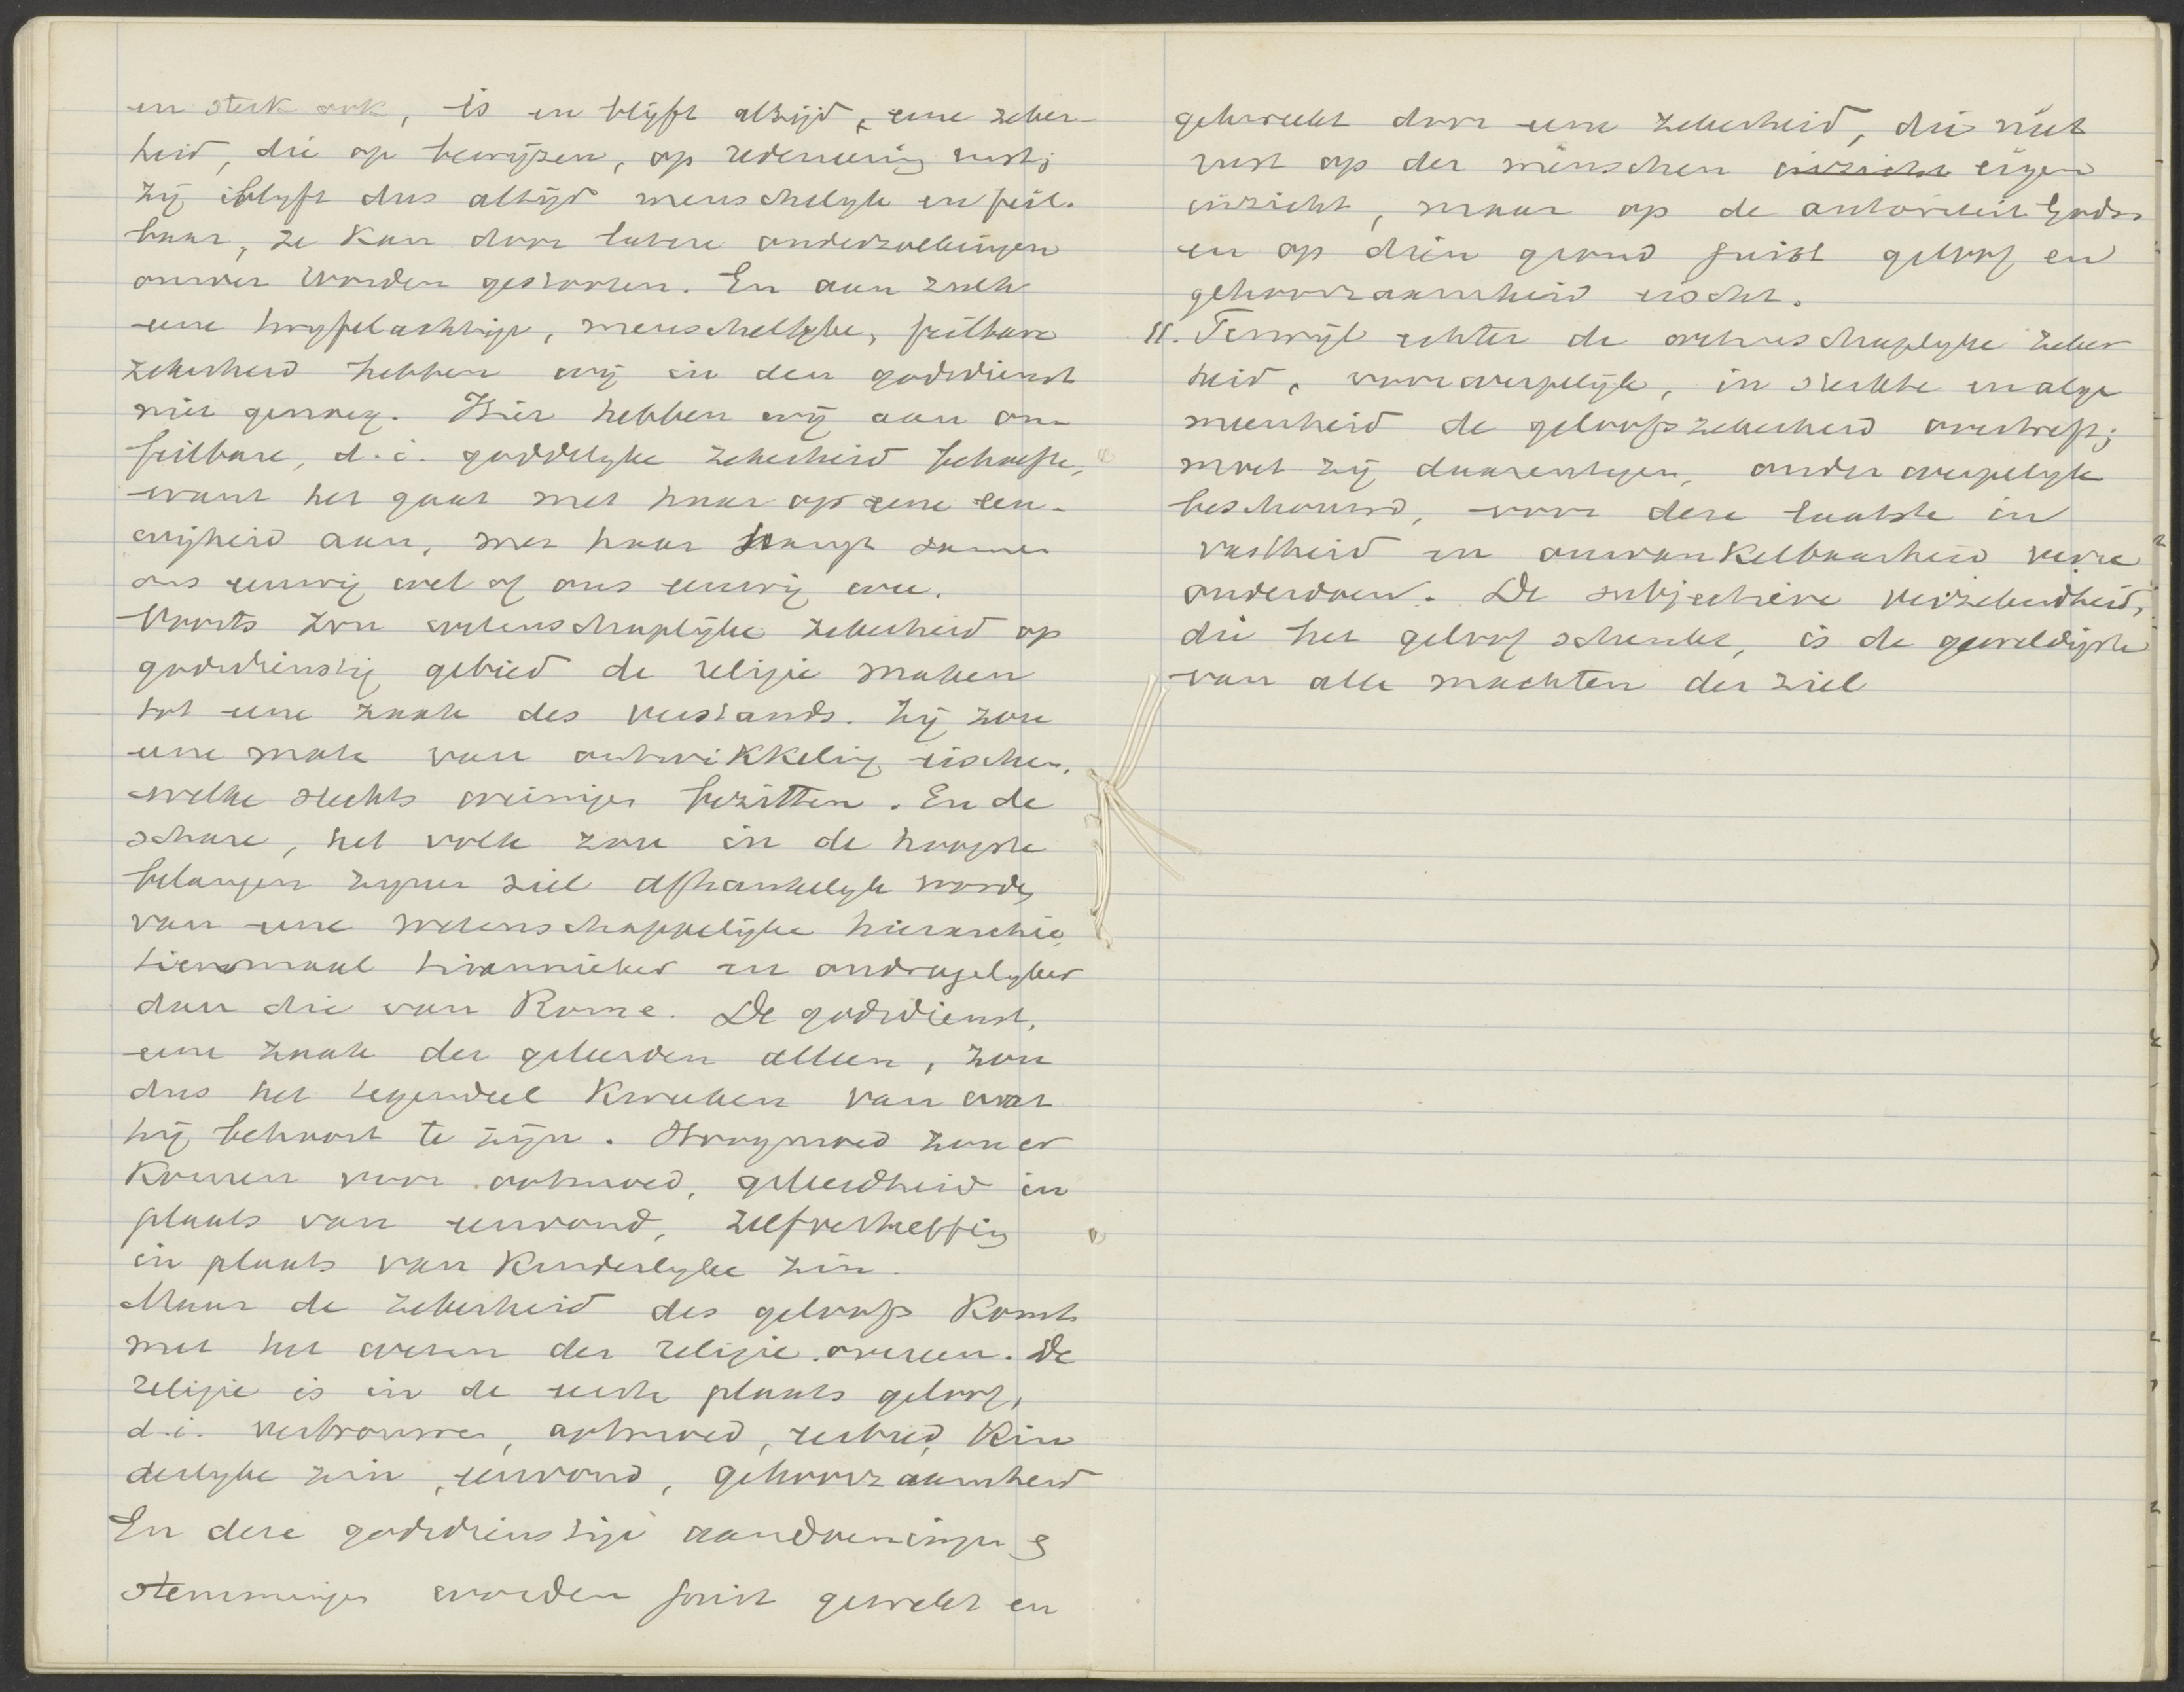 en sterk ook, is en blijft altijd, eene zeker-
heid, die op bewijzen, op redeneering rust;
zij blijft dus altijd menschelijk en feil-
baar, ze kan door latere onderzoekingen
omver worden gestooten. En aan zulk
eene twijfelachtige, menschelijke, feilbare
zekerheid hebben wij in den godsdienst
niet genoeg. Hier hebben wij aan on-
feilbare, d.i. goddelijke zekerheid behoefte,
want het gaat met haar op eene eeu-
wigheid aan, met haar hangt samen
ons eeuwig wel of ons eeuwig wee.
Voorts zou wetenschaplijke zekerheid op
godsdienstig gebied de religie maken
tot eene zaak des verstands. Zij zou
eene mate van ontwikkeling eischen,
welke slechts weinigen bezitten. En de
schare, het volk zou in de hoogste
belangen zijner ziel afhankelijk worden
van eene wetenschappelijke hierarchie,
tienmaal tirannieker en ondragelijker
dan die van Rome. De godsdienst,
eene zaak der geleerden alleen, zou
dus het tegendeel kweeken van wat
hij behoort te zijn. Hoogmoed zou er
komen voor ootmoed, geleerdheid in
plaats van eenvoud, zelfverheffing
in plaats van kinderlijke zin.
Maar de zekerheid des geloofs komt
met het wezen der religie overeen. De
religie is in de eerste plaats geloof,
d.i. vertrouwen, ootmoed, eerbied, kin
derlijke zin, eenvoud, gehoorzaamheid
En deze godsdienstige aandoeningen &
stemmingen worden juist gewekt en
gekweekt door eene zekerheid, die niet
rust op der menschen inzicht eigen
inzicht, maar op de autoriteit Gods
en op dien grond juist geloof en
gehoorzaamheid eischt.
11. Terwijl echter de wetenschaplijke zeker
heid, voorwerpelijk, in sterkte en alge
meenheid de geloofszekerheid overtreft;
moet zij daarentegen, onderwerpelijk
beschouwd, voor deze laatste in
vastheid en onwankelbaarheid verre
onderdoen. De subjectieve verzekerdheid,
die het geloof schenkt, is de geweldigste
van alle machten der ziel